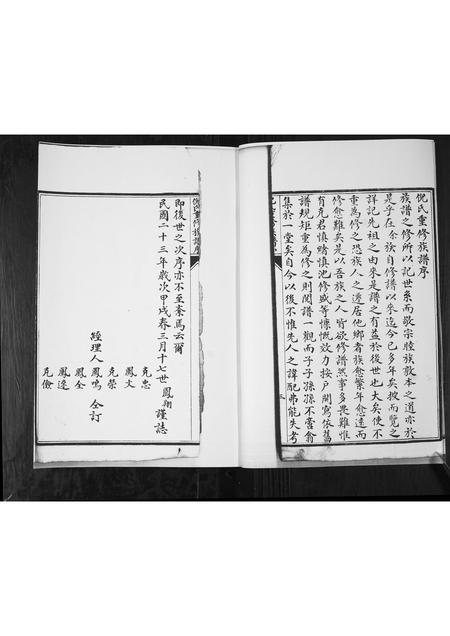 倪氏重修族譜序
族譜之修所以記世系而敬宗睦族敦本之道亦於
是乎在余族自修譜以來迄今已多年矣披而覽之
詳記先祖之由來是譜之有益於後世也大矣使不
重為修之恐族人之遷居他鄉者族愈繁年愈遠而
修愈難矣是以吾族之人皆欲修譜然事多畏難惟
有克君慎緒慎池修盛等慷慨效力按戶開寫依舊
譜規矩重為修之則閱譜一觀而子子孫孫不啻會
集於一堂矣自今以後不惟先人之諱配弗能失考
三
倪氏重修族譜序
即後世之次序亦不至紊焉云爾
民國二十三年歲次甲戌春三月十七世鳳翔謹誌
經理人
克忠
鳳文
克榮
鳳鳴
鳳全
鳳逵
克儉
仝訂